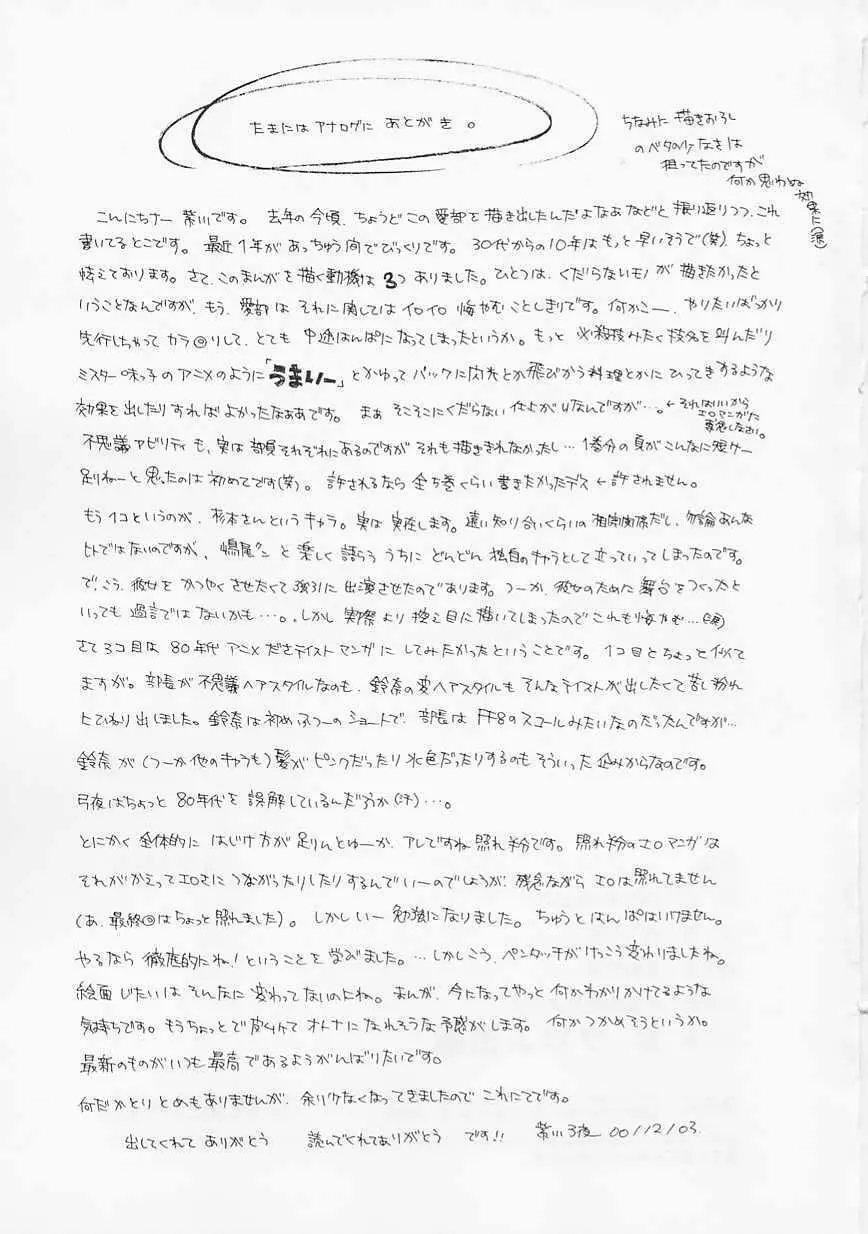 たまにはアナログに あとがき。
ちなみに描きおろし
のベタのりなさは
狙ってたのですが
何か思わぬ
効果に(涙)
こんにちナー 紫川です。 去年の今頃、ちょうどこの愛部を描き出したんだよなあなどと振り返りつつ、これ
書いてるとこです。 最近1年があっちゅう間でびっくりです。 30代からの10年はもっと早いそうで(笑)、ちょっと
怯えております。さて、このまんがを描く動機は 3つ ありました。ひとつは、くだらないモノが描きたかったと
いうことなんですが、もう、愛部はそれに関してはイロイロ悔やむことしきりです。何かこー、やりたいばっかり
先行しちゃってカラ回りして、とても 中途はんぱになってしまったというか。もっと 必殺技みたく技名を叫んだり
ミスター味っ子のアニメのように「うまいー」とかゆってバックに閃光とか飛びかう料理とかにひってきするような
効果を出したりすればよかったなああです。 まぁ そこそこにくだらない仕上がりなんですが…。←それはいいから
エロマンガだ
要念しなさい。
不思議アビリティも、実は部員それぞれにあるのですがそれも描ききれなかったし… 1巻分の頁がこんなに短けー
足りねーと思ったのは初めてです(笑)。 許されるなら全5巻くらい書きたかったデス ←許されません。
もう1コというのが、杉本さんというキャラ。実は実在します。遠い知り合いくらいの相関関係だし、勿論あんな
ヒトではないのですが、鳴尾クンと楽しく語らううちにどんどん独自のキャラとして立っていってしまったのです。
で、こう、彼女をかつやくさせたくて強引に出演させたのであります。つーか、彼女のために舞台をつくったと
いっても過言ではないかも…。しかし実際より控え目に描いてしまったのでこれも悔やむ…(涙)
さて3コ目は80年代アニメださテイストマンガにしてみたかったということです。1コ目とちょっと似て
ますが。部長が不思議ヘアスタイルなのも、鈴奈の変ヘアスタイルもそんなテイストが出したくて苦し紛れ
にひねり出しました。鈴奈は初めふつーのショートで、部長はFF8のスコールみたいなのだったんですが…
鈴奈が(つーか他のキャラも)髪がピンクだったり水色だったりするのもそういった企みからなのです。
弓夜はちょっと80年代を誤解しているんだろうか(汗)…。
とにかく全体的に はじけ方が足りんとゆーか、アレですね照れ半分です。 照れ半分のエロマンガは
それがかえってエロさにつながったりしたりするんでいーのでしょうが、残念ながら エロは照れてません
(あ、最終回はちょっと照れました)。 しかしいー勉強になりました。ちゅうとはんぱはいけません。
やるなら徹底的にね!ということを学びました。…しかしこう、ペンタッチがけっこう変わりましたね。
絵画じたいはそんなに変わってないのにね。まんが、今になってやっと何かわかりかけてるような
気持ちです。もうちょっとで皮むけてオトナになれそうな予感がします。 何かつかめそうというか。
最新のものがいつも最高であるようがんばりたいです。
何だかとりとめもありませんが、余りクなくなってきましたのでこれにてです。
出してくれて ありがとう 読んでくれてありがとう です!! 紫川弓夜 00/12/03